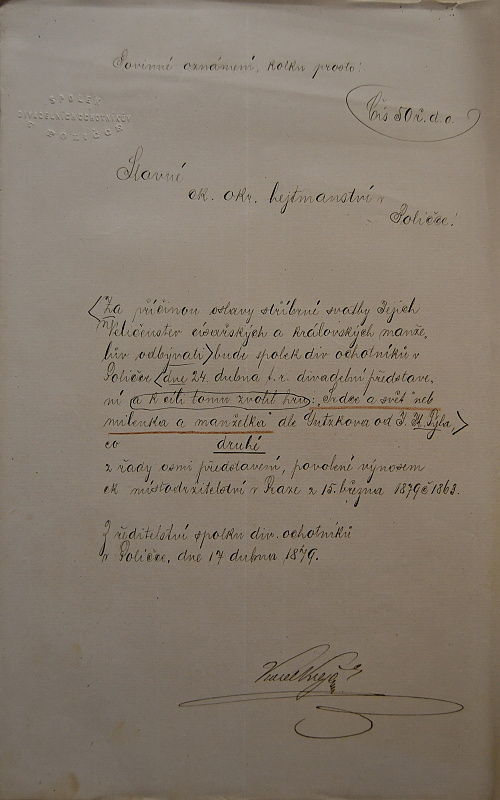 Povinné oznámení, kolku prosto!
SPOLEK
DIVADELNÍCH OCHOTNÍKŮV
V POLIČCE
Čís 50 ž. d. o.
Slavné
ck. okr. hejtmanství v
Poličce!
Za příčinou oslavy stříbrné svatby Jejich
Veličenstev císařských a královských manže-
lův odbývati bude spolek div ochotníků v
Poličce dne 24. dubna t. r. divadelní představe-
ní a k cíli tomu zvolil hru: „Srdce a svět" neb
milenka a manželka" dle Gutzkova od J. K. Tyla
co druhé
z řady osmi představení, povolené výnosem
ck místodržitelství v Praze z 15. března 1879 č 1863.
Z ředitelství spolku div. ochotníků
v Poličce, dne 17 dubna 1879.